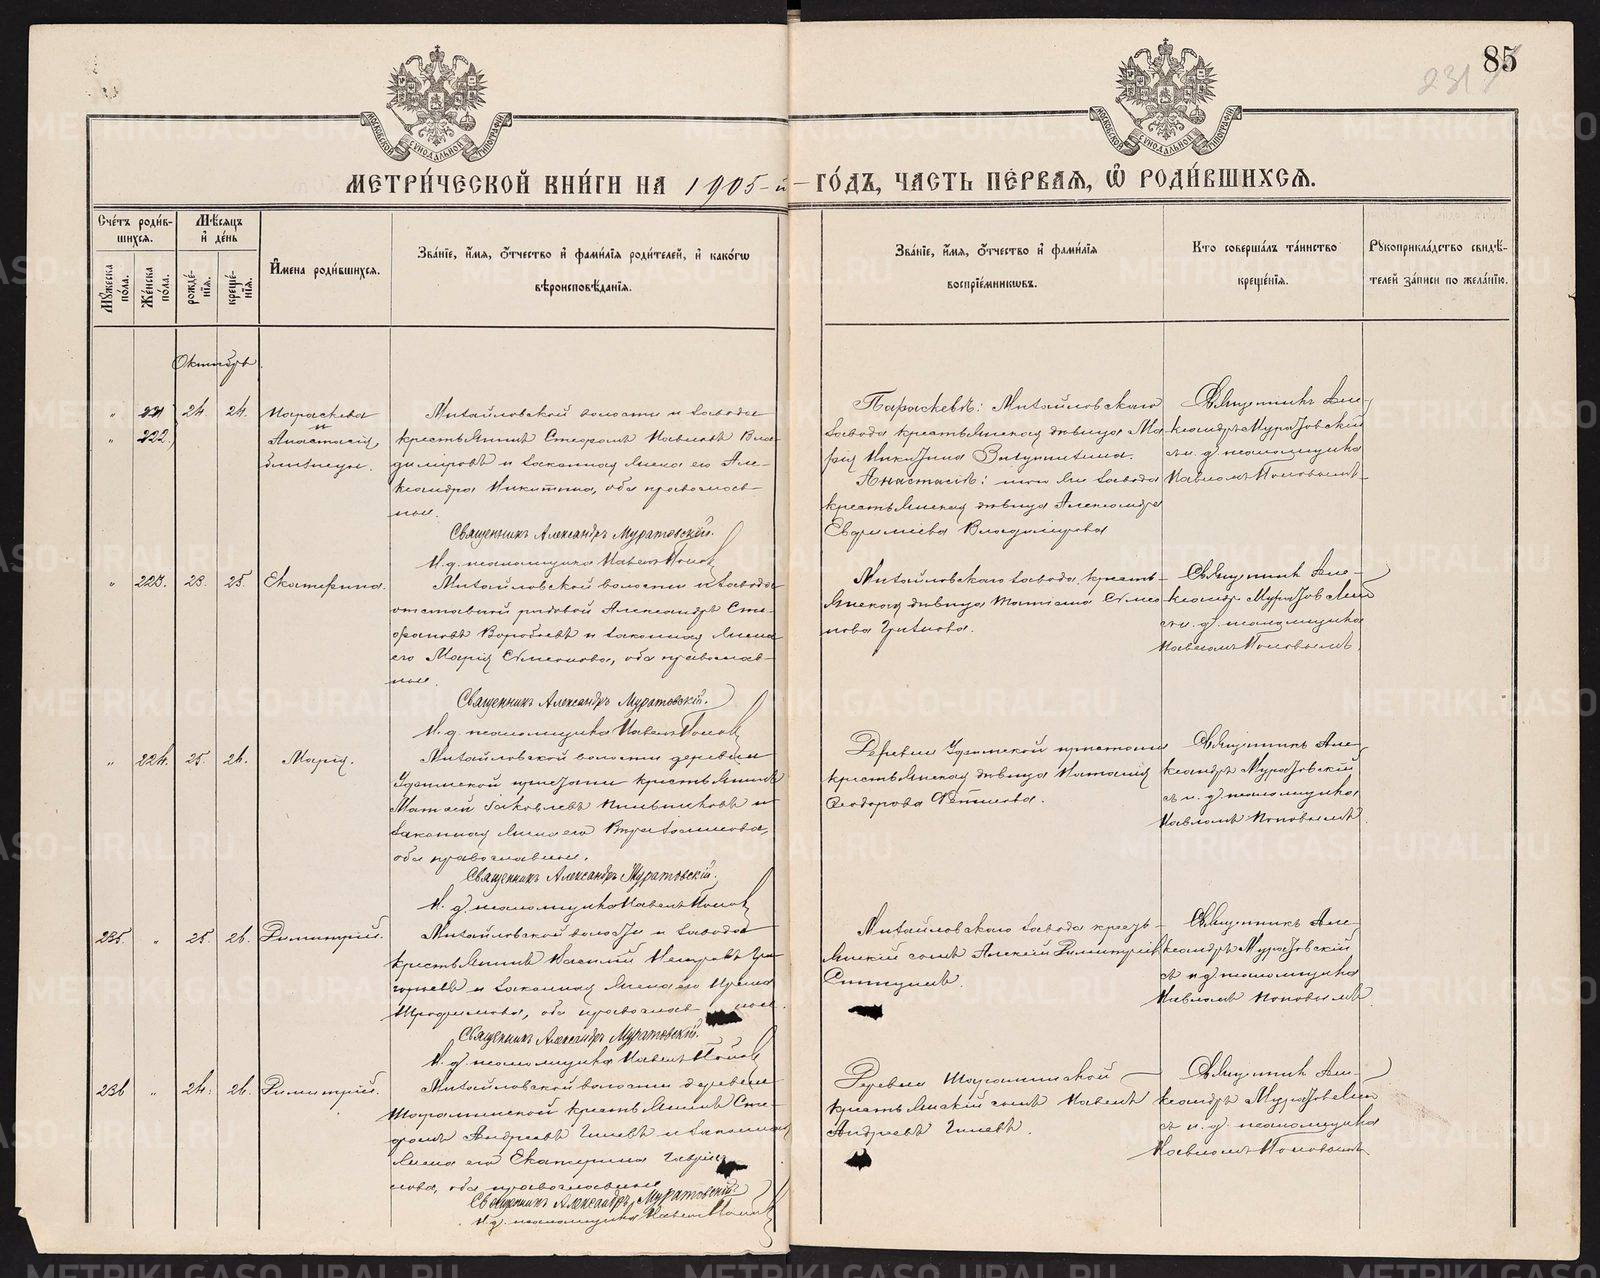 85
231
МОСКОВСКОЙ СУНОДАЛЬНОЙ ТИПОГРАФІИ
МОСКОВСКОЙ СУНОДАЛЬНОЙ ТИПОГРАФІИ
МЕТРИ́ЧЕСКОЙ КНИ́ГИ НА 1905-й ГО́ДЪ, ЧАСТЬ ПЕ́РВАЯ, Ѡ РОДИ́ВШИХСЯ.
Сче́тъ роди́в-
шихся.
Му́жеска по́ла.
Же́нска по́ла.
Мѣ́сяцъ
и́ де́нь
рожде́-
нія.
креще́-
нія.
И́мена роди́вшихся.
Зва́ніе, и́мя, о́тчество и́ фами́лія роди́телей, и́ како́гѡ
вѣроисповѣ́данія.
Зва́ніе, и́мя, о́тчество и́ фами́лія
воспріе́мникѡвъ.
Кто̀ соверша́лъ та́инство
креще́нія.
Рукоприкла́дство свидѣ́-
телей за́писи по жела́нію.
Октябрь
" 221 24. 24. Параскева
и
" 222. Анастасія,
близнецы.
Михайловской волости и завода
крестьянинъ Стефанъ Павловъ Вла-
димировъ и законная жена его Але-
ксандра Никитина, оба православ-
ные.
Священникъ Александръ Муратовскій.
И. д. псаломщика Павелъ Поповъ
Параскевѣ: Михайловскаго
завода крестьянская дѣвица Ма-
рія Никитина
Анастасіи: того же завода
крестьянская дѣвица Александра
Евфиміева Владимірова
Священникъ Але-
ксандръ Муратовскій
съ и. д. псаломщика
Павломъ Поповымъ
" 223. 23. 25. Екатерина.
Михайловской волости и завода
отставной рядовой Александръ Сте-
фановъ Воробьевъ и законная жена
его Марія Симеонова, оба православ-
ные.
Священникъ Александръ Муратовскій.
И. д. псаломщика Павелъ Поповъ
Михайловскаго завода кресть-
янская дѣвица Татіана Симео-
нова
Священникъ Але-
ксандръ Муратовскій
съ и. д. псаломщика
Павломъ Поповымъ
" 224. 25. 26. Марія.
Михайловской волости деревни
Уфимской пристани крестьянинъ
Матѳей Іаковлевъ и
законная жена его
оба православные.
Священникъ Александръ Муратовскій.
И. д. псаломщика Павелъ Поповъ
Деревни Уфимской пристани
крестьянская дѣвица Наталія
Ѳеодорова
Священникъ Але-
ксандръ Муратовскій
съ и. д. псаломщика
Павломъ Поповымъ
235. " 25. 26. Димитрій.
Михайловской волости и завода
крестьянинъ Василій Петровъ Гри-
горьевъ и законная жена его Ирина
Трофимова, оба православные.
Священникъ Александръ Муратовскій.
И. д. псаломщика Павелъ Поповъ
Михайловскаго завода кресть-
янскій сынъ Алексій Димитріевъ
Священникъ Але-
ксандръ Муратовскій
съ и. д. псаломщика
Павломъ Поповымъ
236 " 24. 26. Димитрій.
Михайловской волости деревни
Шараминской крестьянинъ Сте-
фанъ Андреевъ и законная
жена его Екатерина Гаврі-
лова, оба православные
Священникъ Александръ Муратовскій
И. д. псаломщика Павелъ Поповъ
Деревни Шараминской
крестьянскій сынъ Павелъ
Андреевъ
Священникъ Але-
ксандръ Муратовскій
съ и. д. псаломщика
Павломъ Поповымъ
METRIKI.GASO-URAL.RU